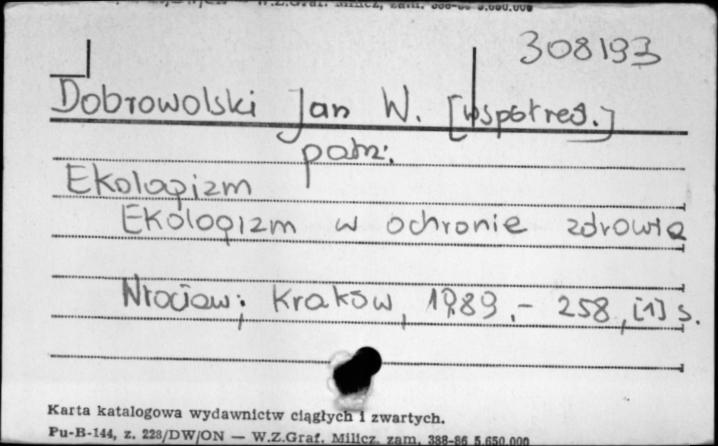 W.Z.Graf. Milicz, zam. 388-86 5.650.000
308193
Dobrowolski Jan W. [współred.]
patrz:
Ekologizm
Ekologizm w ochronie zdrowia
Wrocław; Kraków, 1989.- 258, [1] s.
Karta katalogowa wydawnictw ciągłych i zwartych.
Pu-B-144, z. 228/DW/ON — W.Z.Graf. Milicz, zam. 388-86 5.650.000